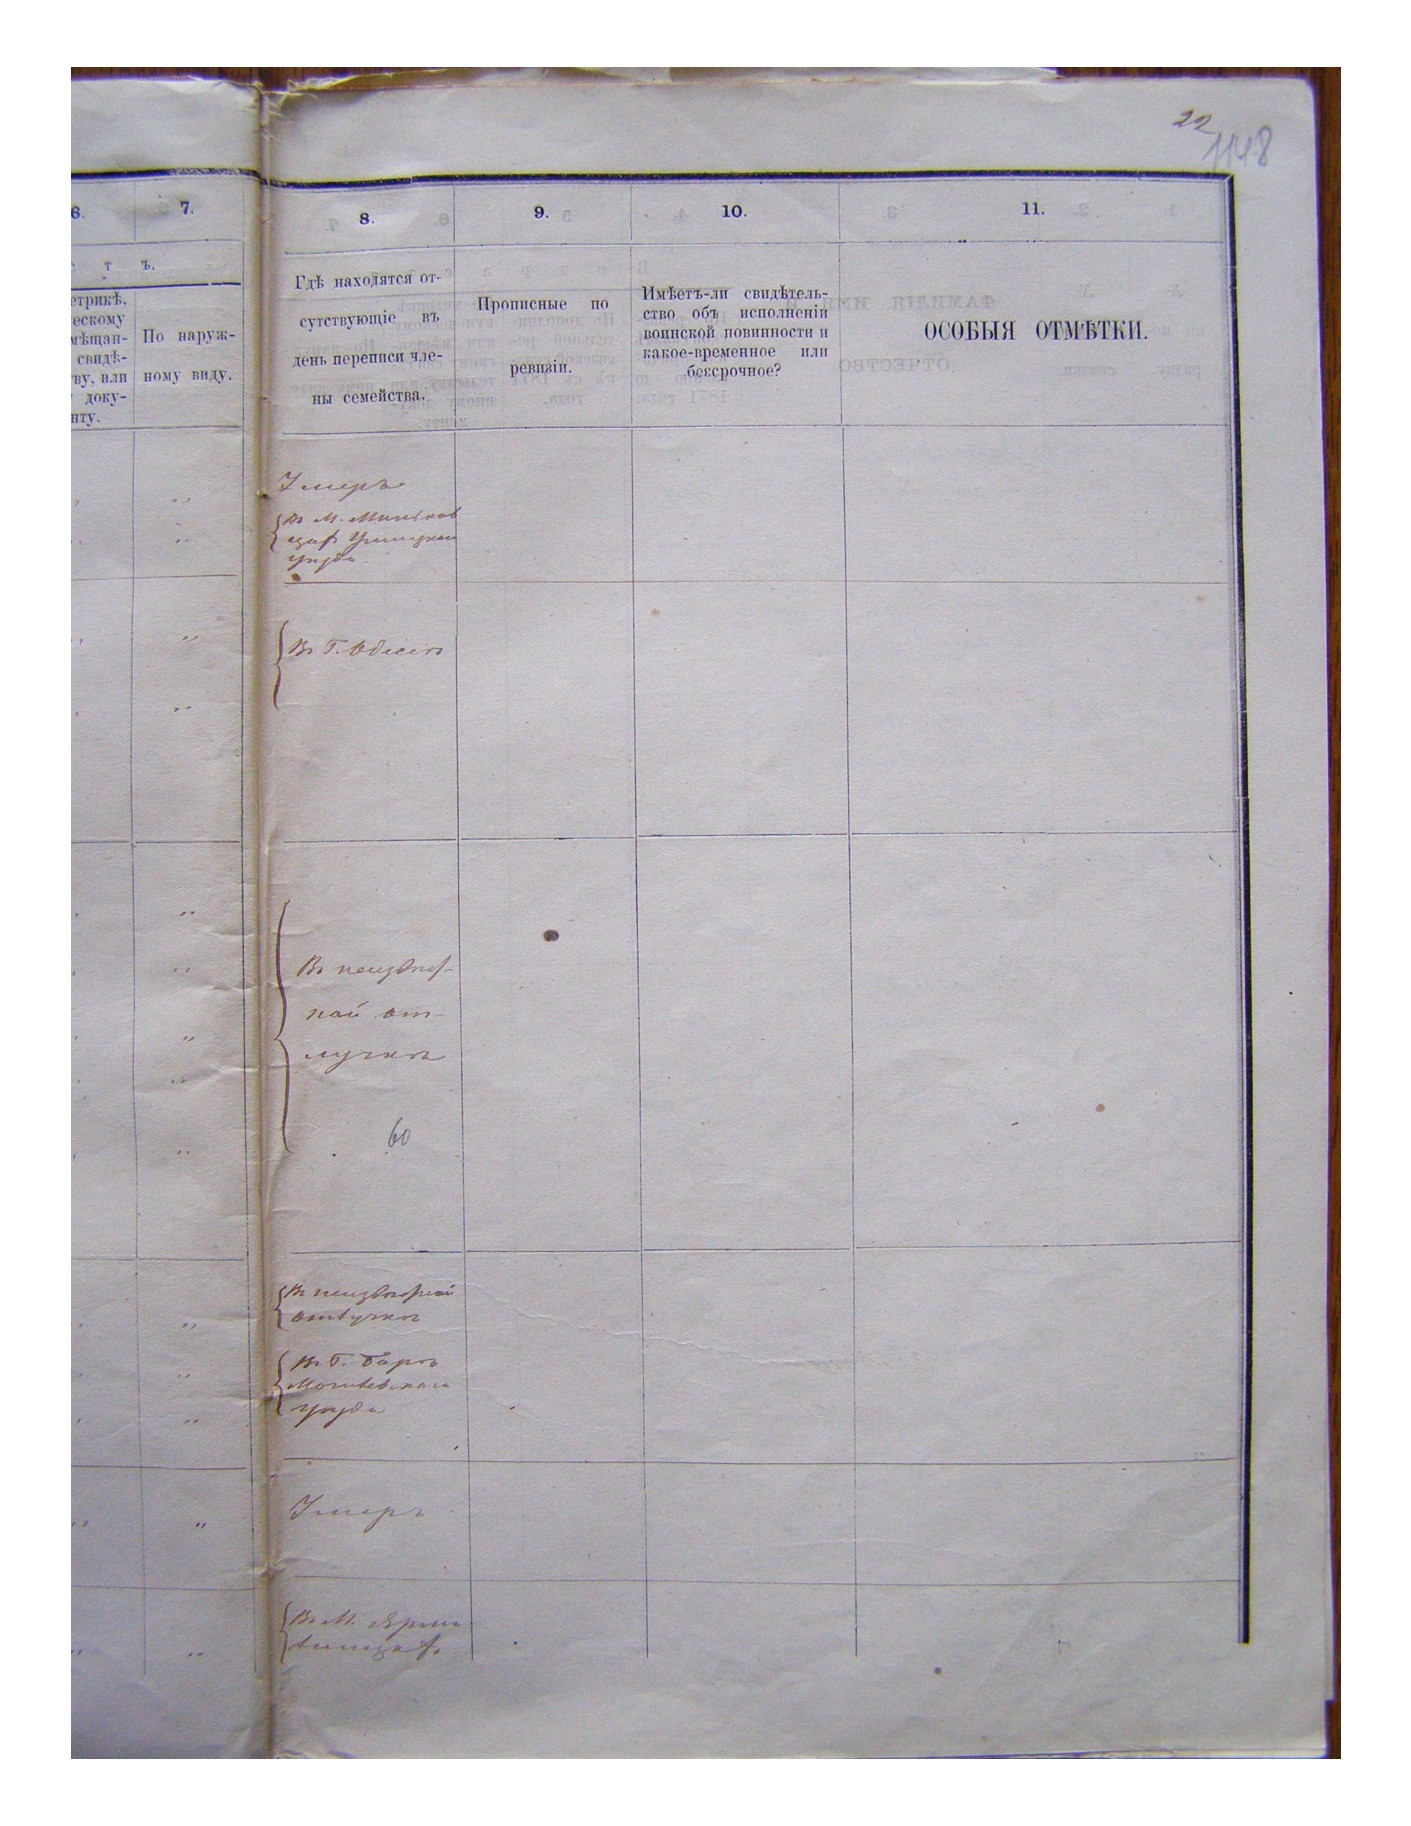 22
1148
6.
7.
8.
9.
10.
11.
т ъ.
етрикѣ,
ческому
мѣщан-
свидѣ-
ву, или
доку-
нту.
По наруж-
ному виду.
Гдѣ находятся от-
сутствующіе въ
день переписи чле-
ны семейства.
Прописные по
ревизіи.
Имѣетъ-ли свидѣтель-
ство объ исполненіи
воинской повинности и
какое-временное или
бексрочное?
ОСОБЫЯ ОТМѢТКИ.
Умеръ
Въ М. Миньков
цахъ Ушицкаго
уѣзда
Въ Г. Одессѣ
Въ неизвѣст-
ной от-
лучкѣ
60
Въ неизвѣстной
отлучкѣ
Въ Г. Барѣ
Могилевскаго
уѣзда
Умеръ
Въ М.